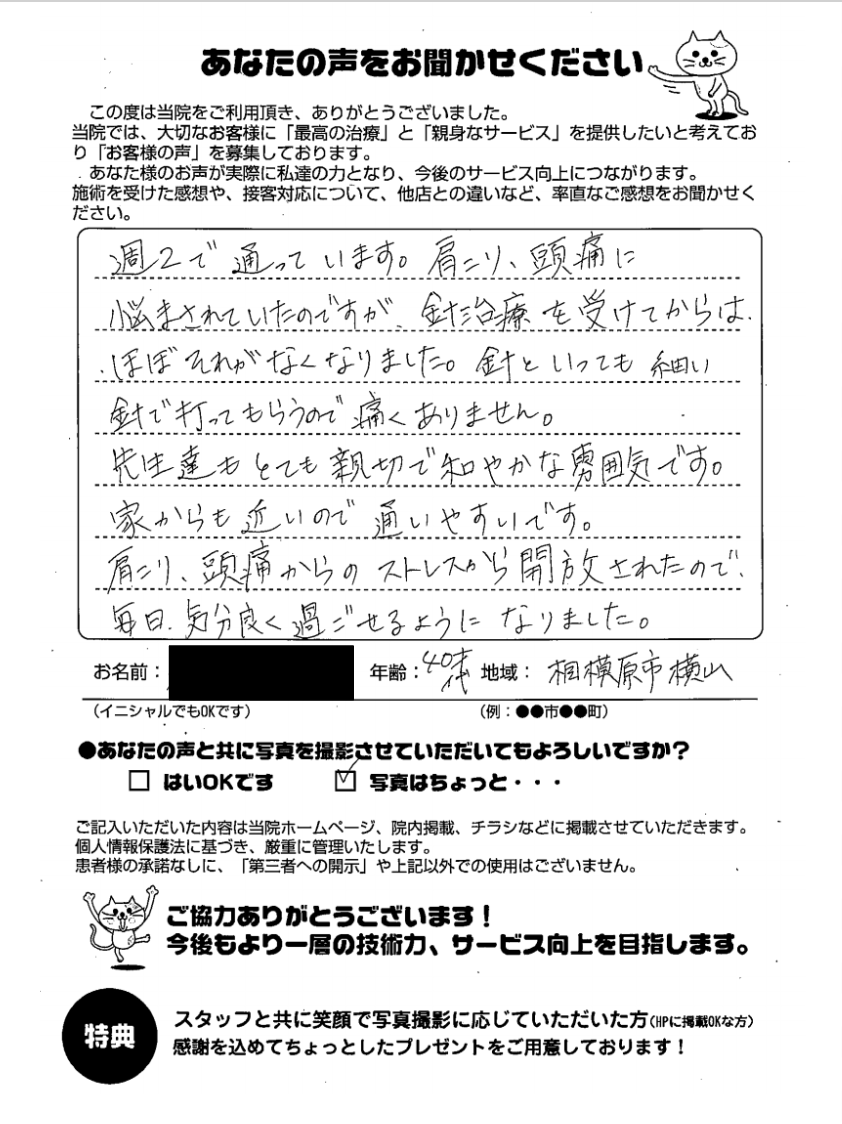 あなたの声をお聞かせください
この度は当院をご利用頂き、ありがとうございました。
当院では、大切なお客様に「最高の治療」と「親身なサービス」を提供したいと考えてお
り「お客様の声」を募集しております。
あなた様のお声が実際に私達の力となり、今後のサービス向上につながります。
施術を受けた感想や、接客対応について、他店との違いなど、率直なご感想をお聞かせく
ださい。
週2で通っています。肩こり、頭痛に
悩まされていたのですが、針治療を受けてからは、
ほぼそれがなくなりました。針といっても細い
針で打ってもらうので痛くありません。
先生達もとても親切で和やかな雰囲気です。
家からも近いので通いやすいです。
肩こり、頭痛からのストレスから開放されたので、
毎日、気分良く過ごせるようになりました。
お名前： 年齢：40才代 地域：相模原市横山
（イニシャルでもOKです） （例：●●市●●町）
●あなたの声と共に写真を撮影させていただいてもよろしいですか？
□ はいOKです ☑ 写真はちょっと・・・
ご記入いただいた内容は当院ホームページ、院内掲載、チラシなどに掲載させていただきます。
個人情報保護法に基づき、厳重に管理いたします。
患者様の承諾なしに、「第三者への開示」や上記以外での使用はございません。
ご協力ありがとうございます！
今後もより一層の技術力、サービス向上を目指します。
特典
スタッフと共に笑顔で写真撮影に応じていただいた方（HPに掲載OKな方）
感謝を込めてちょっとしたプレゼントをご用意しております！